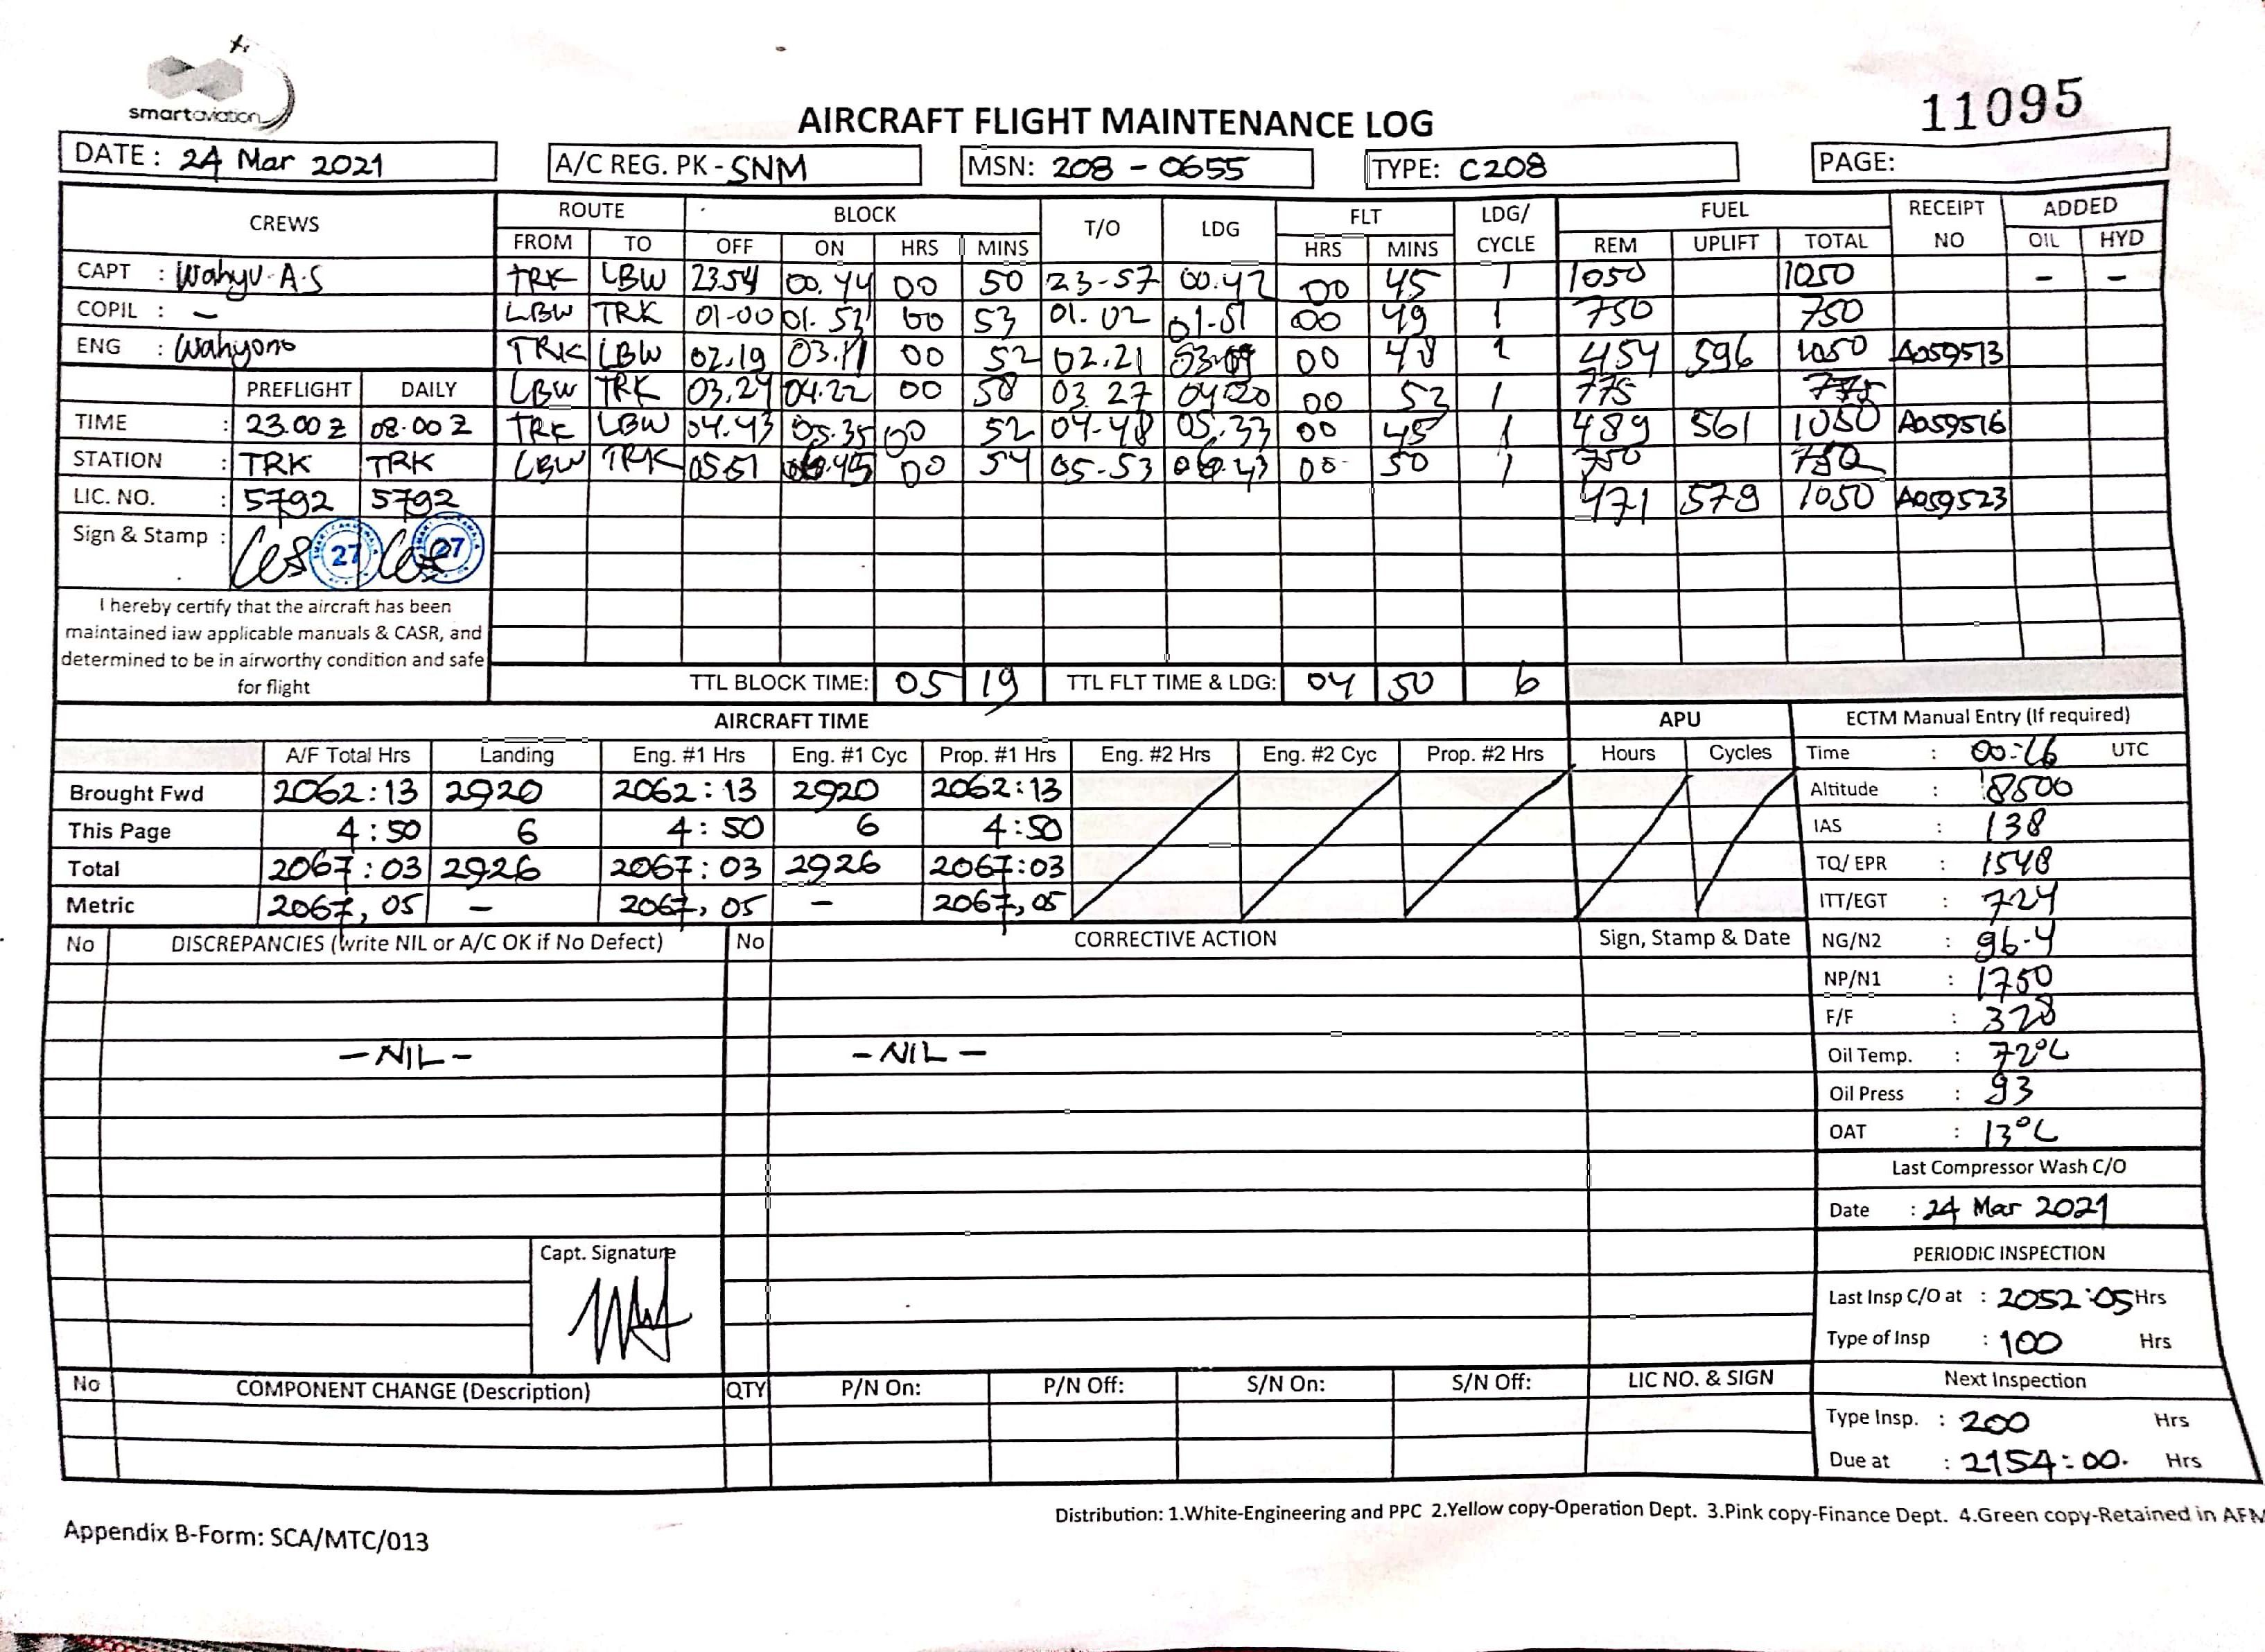 smartaviation
11095
AIRCRAFT FLIGHT MAINTENANCE LOG
DATE : 24 Mar 2021 A/C REG. PK - SNM MSN: 208 - 0655 TYPE: C208 PAGE:
CREWS ROUTE BLOCK T/O LDG FLT LDG/ CYCLE FUEL RECEIPT NO ADDED
FROM TO OFF ON HRS MINS HRS MINS REM UPLIFT TOTAL OIL HYD
CAPT : Wahyu A.S TRK LBW 23.54 00.44 00 50 23-57 00.42 00 45 1 1050 1050 - -
COPIL : - LBW TRK 01-00 01.53 00 53 01.02 01-51 00 49 1 750 750
ENG : Wahyono TRK LBW 02.19 03.11 00 52 02.21 03.09 00 48 1 454 596 1050 A059513
PREFLIGHT DAILY LBW TRK 03.24 04.22 00 58 03.27 04.20 00 53 1 775 775
TIME : 23.00 Z 08.00 Z TRK LBW 04.43 05.35 00 52 04-48 05.33 00 45 1 489 561 1050 A059516
STATION : TRK TRK LBW TRK 05.51 06.45 00 54 05-53 06.43 00 50 1 750 750
LIC. NO. : 5792 5792 471 579 1050 A059523
Sign & Stamp : 27 27
I hereby certify that the aircraft has been
maintained iaw applicable manuals & CASR, and
determined to be in airworthy condition and safe
for flight
TTL BLOCK TIME: 05 19 TTL FLT TIME & LDG: 04 50 6
AIRCRAFT TIME APU ECTM Manual Entry (If required)
A/F Total Hrs Landing Eng. #1 Hrs Eng. #1 Cyc Prop. #1 Hrs Eng. #2 Hrs Eng. #2 Cyc Prop. #2 Hrs Hours Cycles Time : 00:16 UTC
Brought Fwd 2062:13 2920 2062:13 2920 2062:13 Altitude : 8500
This Page 4:50 6 4:50 6 4:50 IAS : 138
Total 2067:03 2926 2067:03 2926 2067:03 TQ/ EPR : 1548
Metric 2067,05 - 2067,05 - 2067,05 ITT/EGT : 724
No DISCREPANCIES (write NIL or A/C OK if No Defect) No CORRECTIVE ACTION Sign, Stamp & Date NG/N2 : 96.4
NP/N1 : 1750
F/F : 328
- NIL - - NIL - Oil Temp. : 72°C
Oil Press : 93
OAT : 13°C
Last Compressor Wash C/O
Date : 24 Mar 2021
Capt. Signature
PERIODIC INSPECTION
Last Insp C/O at : 2052:05 Hrs
Type of Insp : 100 Hrs
No COMPONENT CHANGE (Description) QTY P/N On: P/N Off: S/N On: S/N Off: LIC NO. & SIGN Next Inspection
Type Insp. : 200 Hrs
Due at : 2154:00. Hrs
Distribution: 1.White-Engineering and PPC 2.Yellow copy-Operation Dept. 3.Pink copy-Finance Dept. 4.Green copy-Retained in AFM
Appendix B-Form: SCA/MTC/013